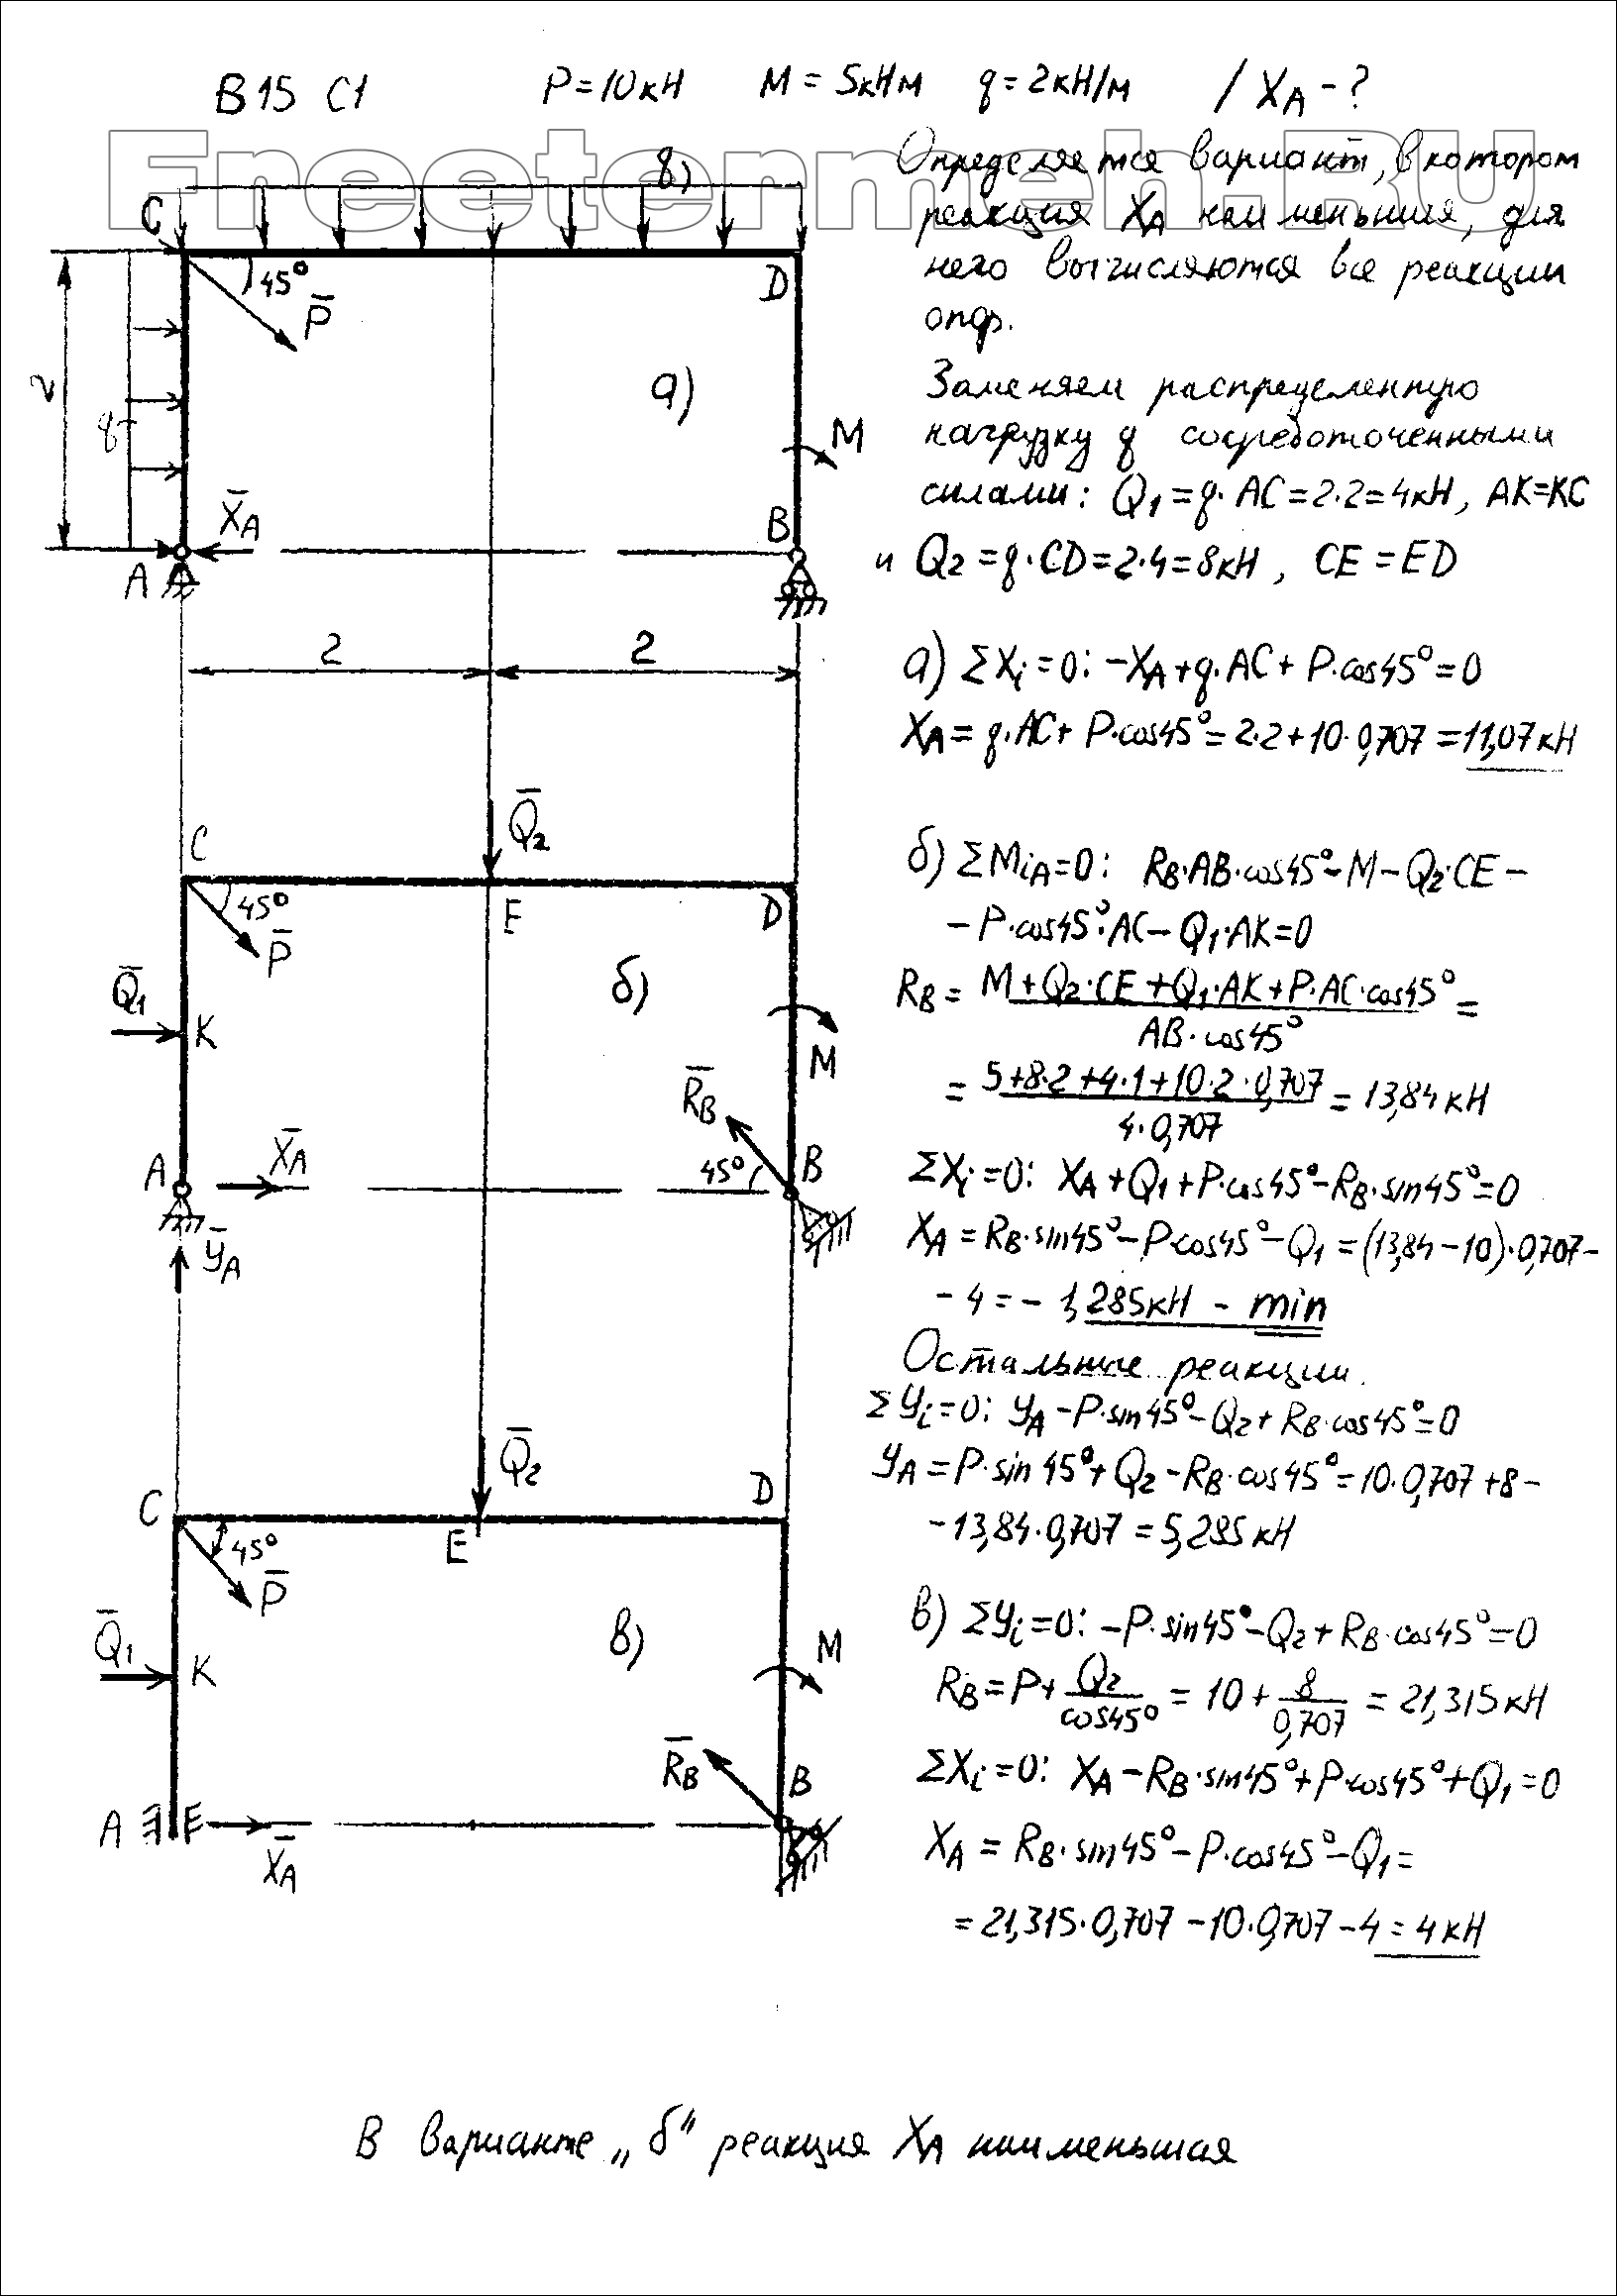 В 15 С1 P = 10кН M = 5кНм q = 2кН/м / XA - ?
Freetermeh.RU
Определяется вариант, в котором
реакция XA наименьшая, для
него вычисляются все реакции
опор.
Заменяем распределенную
нагрузку q сосредоточенными
силами: Q1 = q · AC = 2·2 = 4кН, AK=KC
и Q2 = q·CD = 2·4 = 8кН, CE = ED
а) ΣXi = 0: -XA + q·AC + P·cos45° = 0
XA = q·AC + P·cos45° = 2·2 + 10·0,707 = 11,07кН
б) ΣMiA = 0: RB·AB·cos45° - M - Q2·CE -
- P·cos45°·AC - Q1·AK = 0
RB = M + Q2·CE + Q1·AK + P·AC·cos45° =
AB·cos45°
= 5+8·2+4·1+10·2·0,707 = 13,84 кН
4·0,707
ΣXi = 0: XA + Q1 + P·cos45° - RB·sin45° = 0
XA = RB·sin45° - P·cos45° - Q1 = (13,84 - 10)·0,707 -
- 4 = - 1,285кН - min
Остальные реакции.
ΣYi = 0: YA - P·sin45° - Q2 + RB·cos45° = 0
YA = P·sin45° + Q2 - RB·cos45° = 10·0,707 + 8 -
- 13,84·0,707 = 5,285 кН
в) ΣYi = 0: -P·sin45° - Q2 + RB·cos45° = 0
RB = P + Q2 = 10 + 8 = 21,315 кН
cos45° 0,707
ΣXi = 0: XA - RB·sin45° + P·cos45° + Q1 = 0
XA = RB·sin45° - P·cos45° - Q1 =
= 21,315·0,707 - 10·0,707 - 4 = 4 кН
q
C
45°
P
D
2
а)
q
M
XA
B
A
2 2
Q2
C
45°
E
D
P
Q1
б)
K
M
RB
A
XA
45°
B
YA
Q2
C
D
45°
E
P
Q1
в)
M
K
RB
B
A
XA
В варианте „б" реакция XA наименьшая